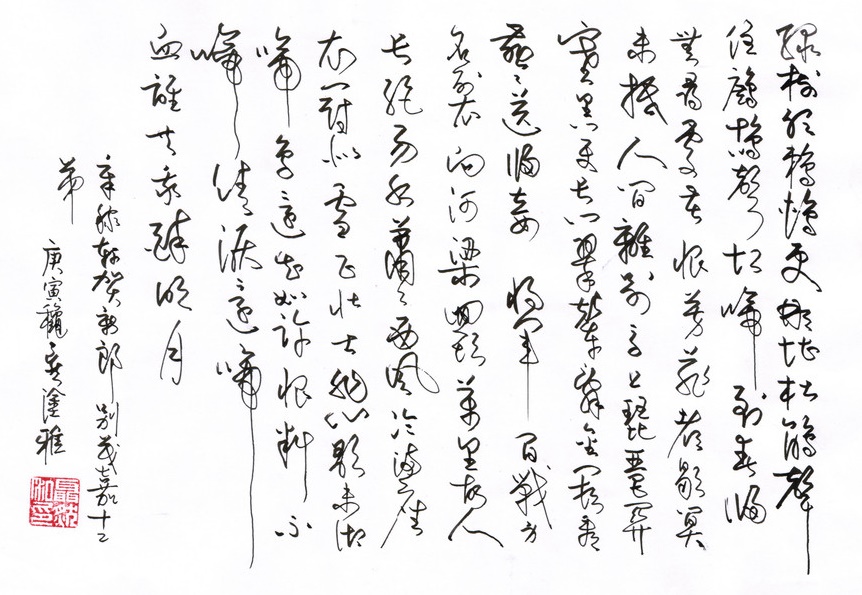 綠樹聽鵜鴂更那堪杜鵑聲
住鷓鴣聲切啼到春歸
無尋處苦恨芳菲都歇算
未抵人間離別馬上琵琶關
塞黑更長門翠輦辭金闕看
燕〻送歸妾 將軍百戰身
名裂向河梁回頭萬里故人
長絕易水蕭〻西風冷滿座
衣冠似雪正壯士悲歌未徹
啼鳥還知如許恨料不
啼清淚還啼
血誰共我醉明月
辛稼軒賀新郎 別茂嘉十二
弟
庚寅龝塗雅